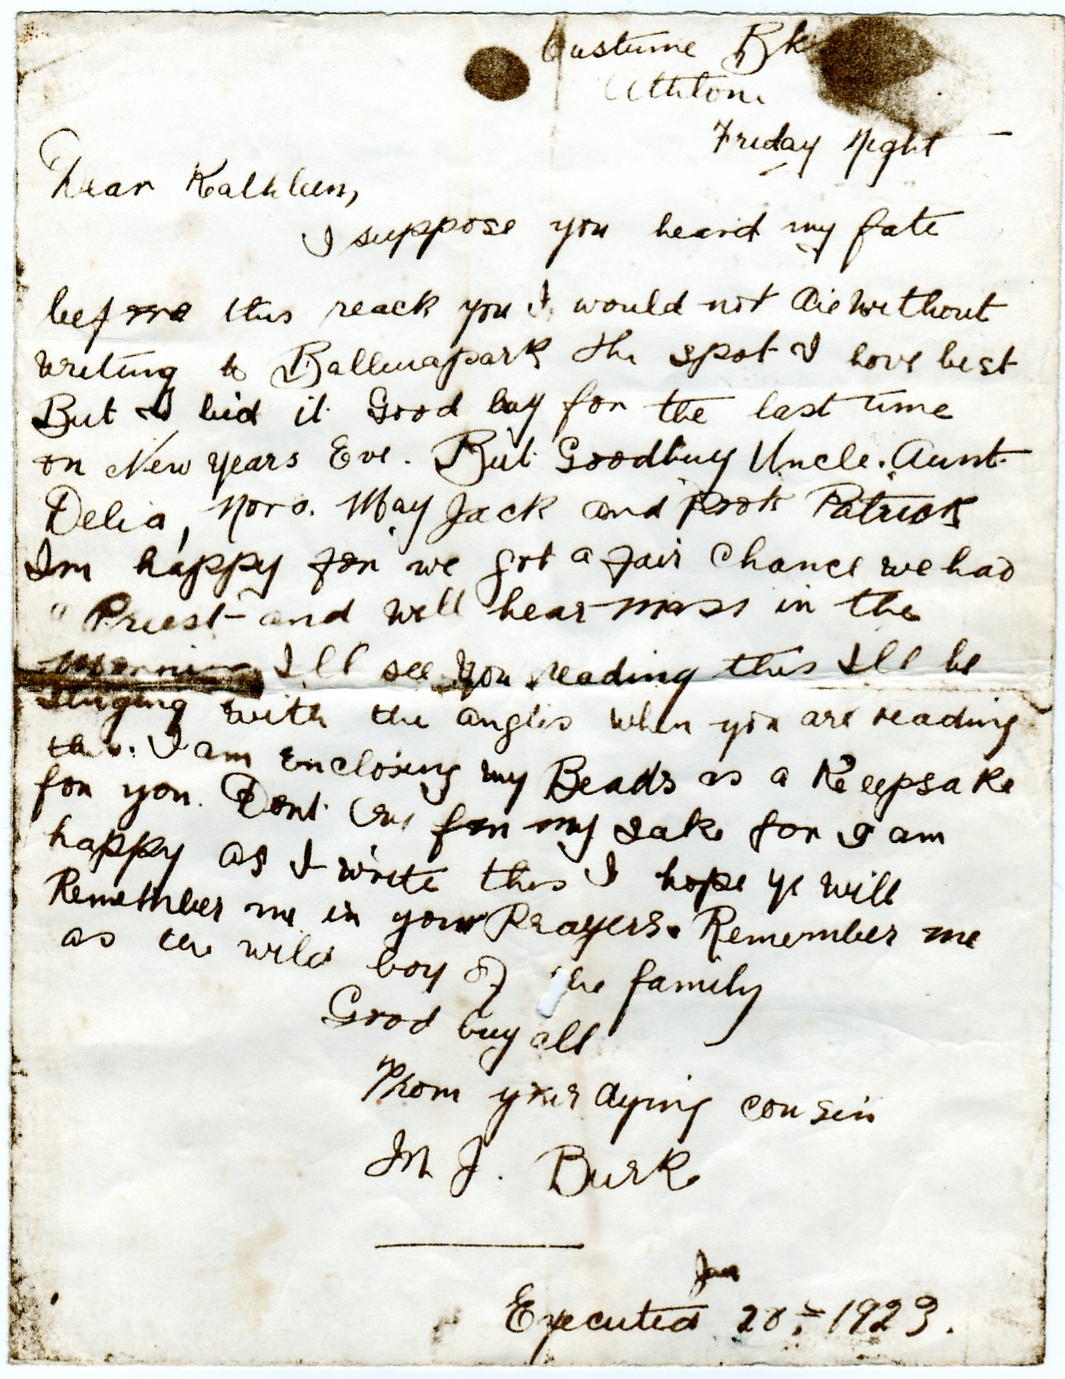 Custume Bk
Athlone
Friday Night
Dear Kathleen,
I suppose you heard my fate
before this reack you I would not die without
writing to Ballinapark the spot I love best
But I bid it Good buy for the last time
on New years Eve. But Goodbuy Uncle. Aunt
Delia, Nora. May Jack and Patrick
Im happy for we got a fair chance we had
a Priest and will hear mass in the
Morning I ll see you reading this Ill be
singing with the angles when you are reading
this. I am Enclosing my Beads as a Keepsake
for you. Dont Cry for my sake for I am
happy as I write this I hope ye will
Remember me in your Prayers. Remember me
as the wild boy of the family
Good buy all
From your dying cousin
M J. Burke
Jan
Executed 20th 1923.